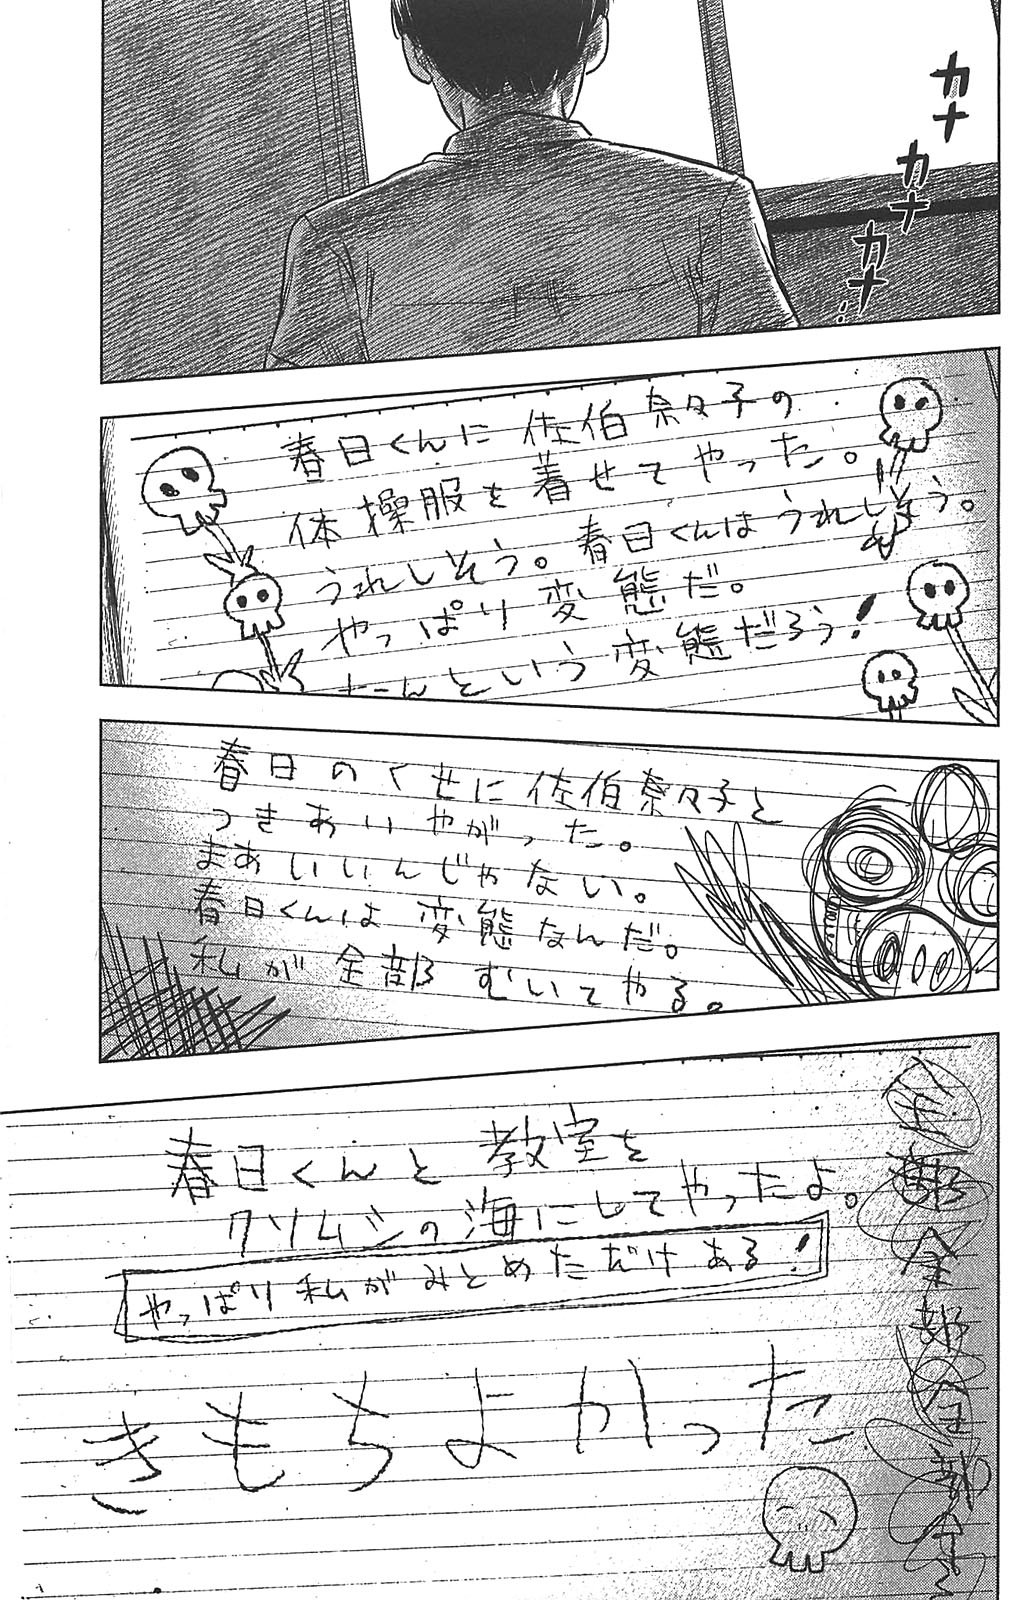 カナ
カナ
カナ…
春日くんに佐伯奈々子の
体操服を着せてやった。
うれしそう。春日くんはうれしそう。
やっぱり変態だ。
なんという変態だろう！
春日のくせに佐伯奈々子と
つきあいやがった。
まあいいんじゃない。
春日くんは変態なんだ。
私が全部むいてやる。
春日くんと教室を
クソムシの海にしてやったよ。
やっぱり私がみとめただけある！
きもちよかった
全部全部全部全